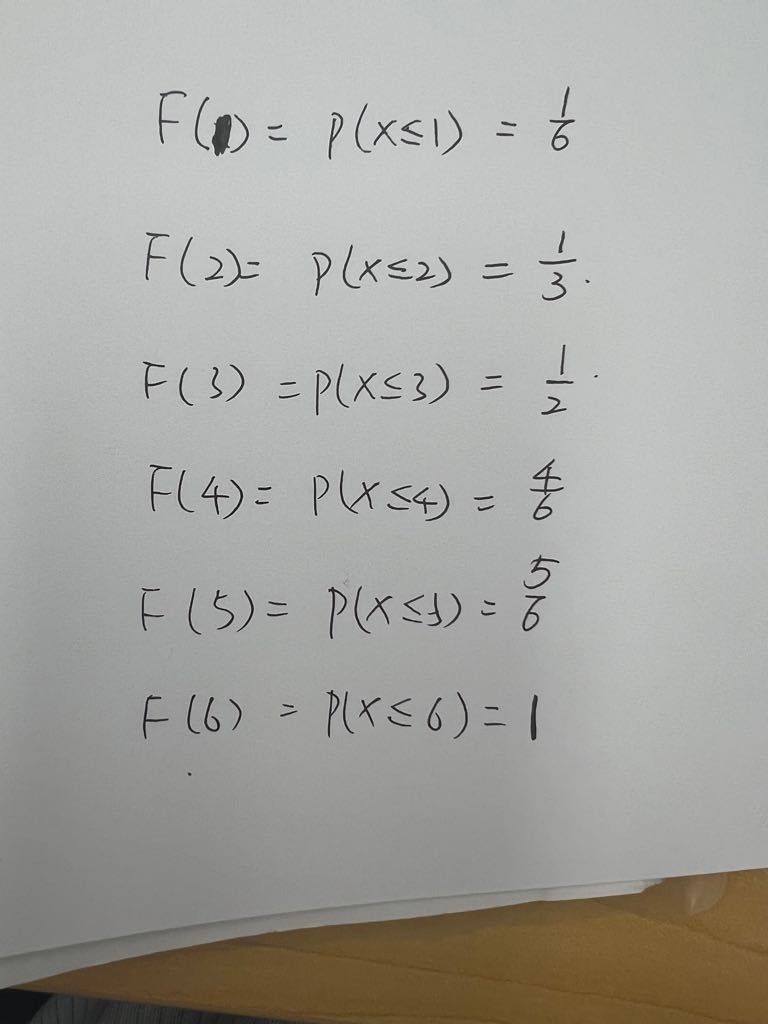 F(1) = P(X≤1) = 1/6
F(2) = P(X≤2) = 1/3.
F(3) = P(X≤3) = 1/2.
F(4) = P(X≤4) = 4/6
F(5) = P(X≤ ) = 5/6
F(6) = P(X≤6) = 1